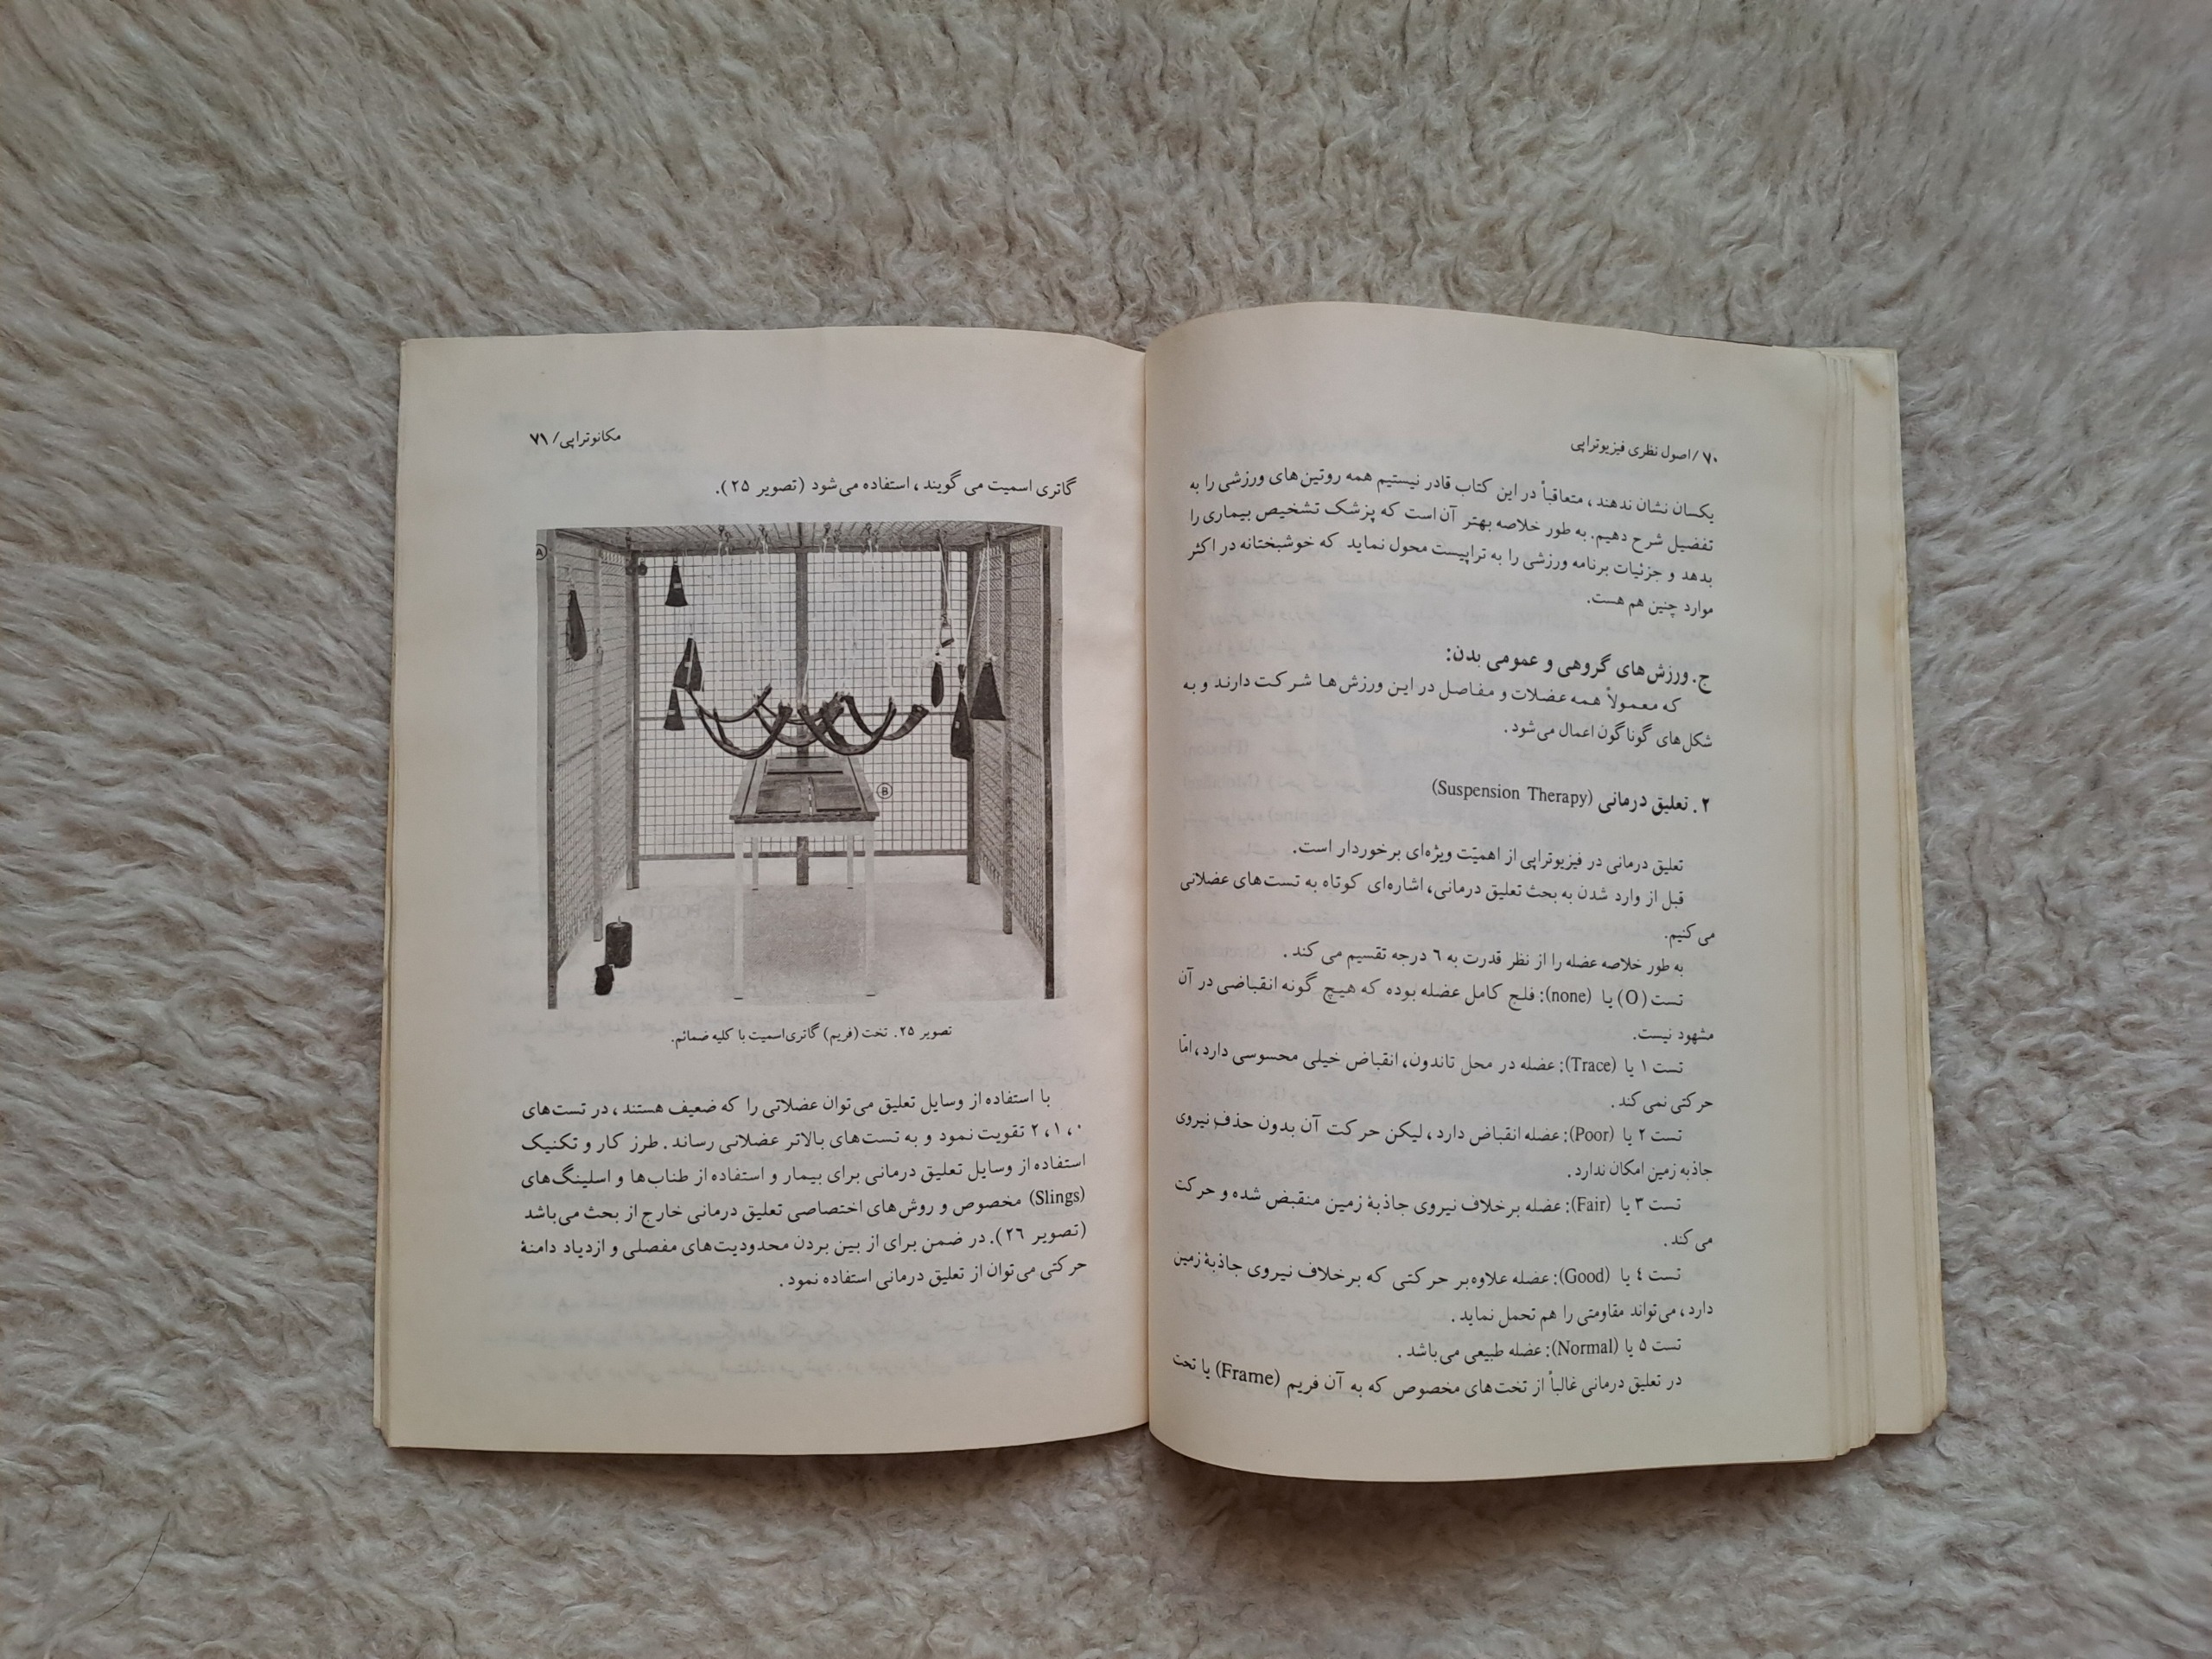 ۷۰ /اصول نظری فیزیوتراپی
یکسان نشان ندهند، متعاقباً در این کتاب قادر نیستیم همه روتین‌های ورزشی را به
تفضیل شرح دهیم. به طور خلاصه بهتر آن است که پزشک تشخیص بیماری را
بدهد و جزئیات برنامه ورزشی را به تراپیست محول نماید که خوشبختانه در اکثر
موارد چنین هم هست.
ج. ورزش‌های گروهی و عمومی بدن:
که معمولاً همه عضلات و مفاصل در این ورزش‌ها شرکت دارند و به
شکل‌های گوناگون اعمال می‌شود.
۲. تعلیق درمانی (Suspension Therapy)
تعلیق درمانی در فیزیوتراپی از اهمیّت ویژه‌ای برخوردار است.
قبل از وارد شدن به بحث تعلیق درمانی، اشاره‌ای کوتاه به تست‌های عضلانی
می‌کنیم.
به طور خلاصه عضله را از نظر قدرت به ٦ درجه تقسیم می کند.
تست (O) یا (none): فلج کامل عضله بوده که هیچ گونه انقباضی در آن
مشهود نیست.
تست ۱ یا (Trace): عضله در محل تاندون، انقباض خیلی محسوسی دارد، امّا
حرکتی نمی‌کند.
تست ۲ یا (Poor): عضله انقباض دارد، لیکن حرکت آن بدون حذف نیروی
جاذبه زمین امکان ندارد.
تست ۳ یا (Fair): عضله برخلاف نیروی جاذبهٔ زمین منقبض شده و حرکت
می‌کند.
تست ٤ یا (Good): عضله علاوه‌بر حرکتی که برخلاف نیروی جاذبهٔ زمین
دارد، می‌تواند مقاومتی را هم تحمل نماید.
تست ۵ یا (Normal): عضله طبیعی می‌باشد.
در تعلیق درمانی غالباً از تخت‌های مخصوص که به آن فریم (Frame) یا تخت
مکانوتراپی/ ۷۱
گاتری اسمیت می گویند، استفاده می‌شود (تصویر ۲۵).
A
B
تصویر ۲۵. تخت (فریم) گاتری‌اسمیت با کلیه ضمائم.
با استفاده از وسایل تعلیق می‌توان عضلاتی را که ضعیف هستند، در تست‌های
۰، ۱، ۲ تقویت نمود و به تست‌های بالاتر عضلانی رساند. طرز کار و تکنیک
استفاده از وسایل تعلیق درمانی برای بیمار و استفاده از طناب‌ها و اسلینگ‌های
(Slings) مخصوص و روش‌های اختصاصی تعلیق درمانی خارج از بحث می‌باشد
(تصویر ۲٦). در ضمن برای از بین بردن محدودیت‌های مفصلی و ازدیاد دامنهٔ
حرکتی می‌توان از تعلیق درمانی استفاده نمود.